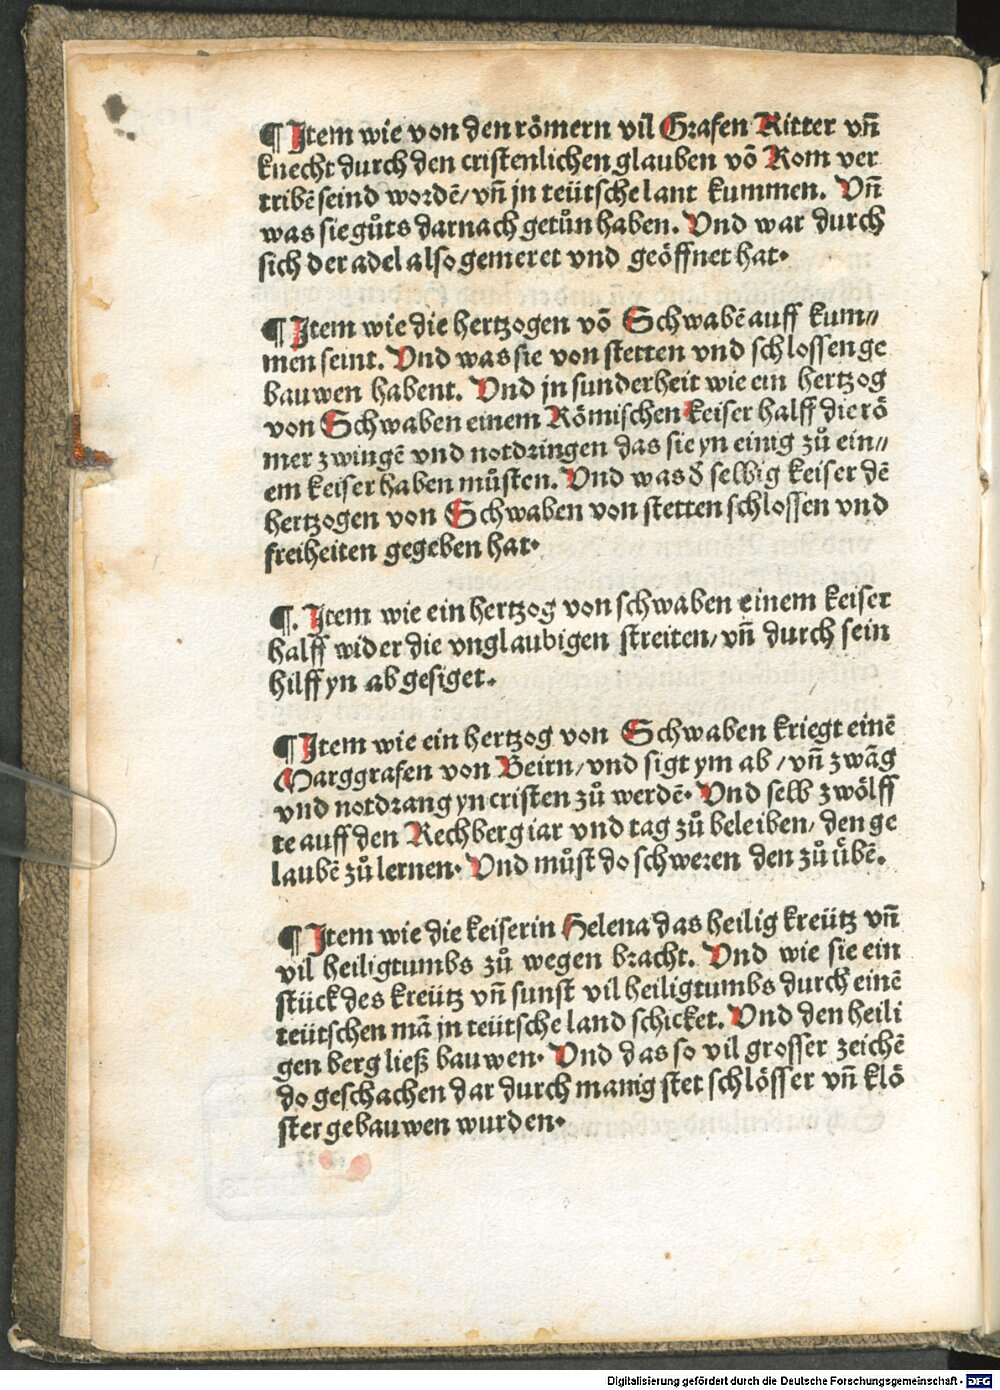 ¶ Jtem wie von den römern vil Grafen Ritter vn̄
knecht durch den cristenlichen glauben vō Rom ver
tribē seind wordē/ vn̄ jn teütsche lant kummen. Vn̄
was sie gůts darnach getůn haben. Vnd war durch
sich der adel also gemeret vnd geöffnet hat·
¶ Jtem wie die hertzogen vō Schwabē auff kum//
men seint. Vnd was sie von stetten vnd schlossen ge
bauwen habent. Vnd jn sunderheit wie ein hertzog
von Schwaben einem Römischen keiser halff die rö
mer zwingē vnd notdringen das sie yn einig zů ein//
em keiser haben můsten. Vnd was d̄ selbig keiser dē
hertzogen von Schwaben von stetten schlossen vnd
freiheiten gegeben hat·
¶. Jtem wie ein hertzog von schwaben einem keiser
halff wider die vnglaubigen streiten/ vn̄ durch sein
hilff yn ab gesiget.
¶ Jtem wie ein hertzog von Schwaben kriegt einē
Marggrafen von Beirn/ vnd sigt ym ab / vn̄ zwāg
vnd notdrang yn cristen zů werdē· Vnd selb zwölff
te auff den Rechberg iar vnd tag zů beleiben/ den ge
laubē zů lernen· Vnd můst do schweren den zů übē.
¶ Jtem wie die keiserin Helena das heilig kreütz vn̄
vil heiligtumbs zů wegen bracht. Vnd wie sie ein
stück des kreütz vn̄ sunst vil heiligtumbs durch einē
teütschen mā jn teütsche land schicket. Vnd den heili
gen berg ließ bauwen· Vnd das so vil grosser zeichē
do geschachen dar durch manig stet schlösser vn̄ klö
ster gebauwen wurden·
Digitalisierung gefördert durch die Deutsche Forschungsgemeinschaft - DFG